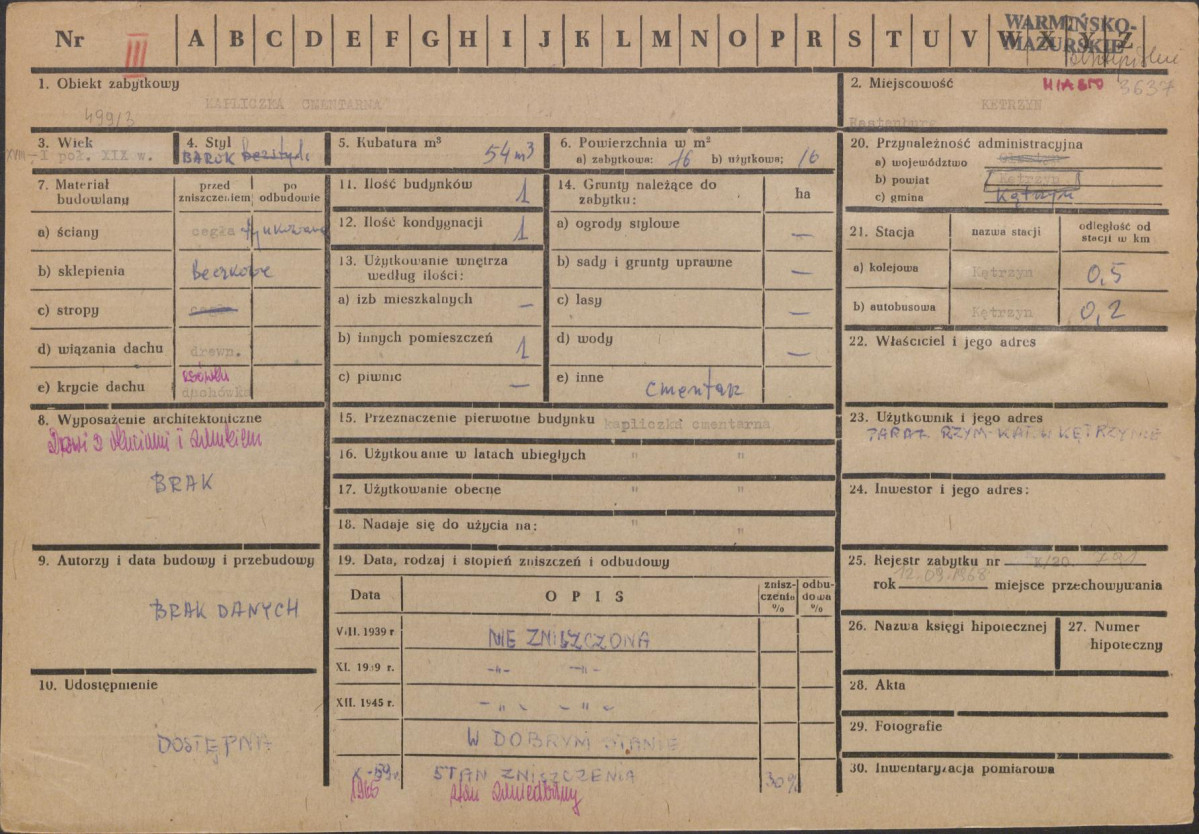 Nr III A B C D E F G H I J K L M N O P R S T U V W X Y Z
WARMIŃSKO-
MAZURSKIE
1. Obiekt zabytkowy
KAPLICZKA CMENTARNA
499/3
2. Miejscowość MIASTO 3637
KĘTRZYN
Rastenburg
3. Wiek
XVIII - I poł. XIX w.
4. Styl
BAROK bezstyl.
5. Kubatura m³
54 m³
6. Powierzchnia w m²
a) zabytkowa: 16 b) użytkowa: 16
20. Przynależność administracyjna
a) województwo
b) powiat Kętrzyn
c) gmina Kętrzyn
7. Materiał budowlany
przed zniszczeniem
po odbudowie
a) ściany cegła tynkowana
b) sklepienia beczkowe
c) stropy cegła
d) wiązania dachu drewn.
e) krycie dachu
dachówka
11. Ilość budynków 1
12. Ilość kondygnacji 1
13. Użytkowanie wnętrza
według ilości:
a) izb mieszkalnych —
b) innych pomieszczeń 1
c) piwnic —
14. Grunty należące do
zabytku:
ha
a) ogrody stylowe —
b) sady i grunty uprawne —
c) lasy —
d) wody —
e) inne cmentarz
21. Stacja
nazwa stacji
odległość od
stacji w km
a) kolejowa Kętrzyn 0,5
b) autobusowa Kętrzyn 0,2
22. Właściciel i jego adres
8. Wyposażenie architektoniczne
Drzwi z okuciami i zamkiem
BRAK
15. Przeznaczenie pierwotne budynku kapliczki cmentarna
16. Użytkowanie w latach ubiegłych " "
17. Użytkowanie obecne " "
18. Nadaje się do użycia na: " "
23. Użytkownik i jego adres
PARAF. RZYM-KAT. W KĘTRZYNIE
24. Inwestor i jego adres:
9. Autorzy i data budowy i przebudowy
BRAK DANYCH
19. Data, rodzaj i stopień zniszczeń i odbudowy
Data
O P I S
znisz-
czenia
%
odbu-
dowa
%
VIII. 1939 r NIE ZNISZCZONA
XI. 1939 r. -"- -"-
XII. 1945 r. -"- -"-
W DOBRYM STANIE
X-59r. STAN ZNISZCZENIA 30%
1966 stan zaniedbany
25. Rejestr zabytku nr X/20 791
12.09.1968
rok miejsce przechowywania
26. Nazwa księgi hipotecznej
27. Numer
hipoteczny
10. Udostępnienie
DOSTĘPNA
28. Akta
29. Fotografie
30. Inwentaryzacja pomiarowa